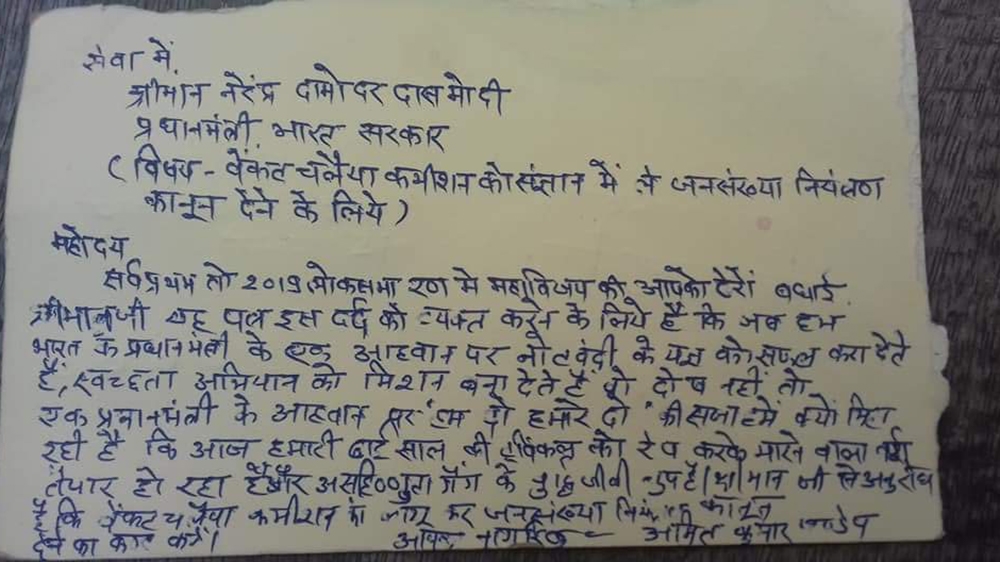 सेवा में,
श्रीमान नरेंद्र दामोदर दास मोदी
प्रधानमंत्री, भारत सरकार
(विषय - वेंकट चलैया कमीशन को संज्ञान में ले जनसंख्या नियंत्रण
कानून देने के लिये)
महोदय
सर्वप्रथम तो २०१९ लोकसभा रण मे महाविजय की आपको ढेरों बधाई.
श्रीमानजी यह पत्र इस दर्द को व्यक्त करने के लिये है कि जब हम
भारत के प्रधानमंत्री के एक आहवान पर नोटबंदी के यज्ञ को सफल करा देते
है, स्वच्छता अभियान को मिशन बना देते है तो दोष नहीं तो
एक प्रधानमंत्री के आहवान पर हम दो हमारे दो की सजा हमें क्यों मिल
रही है कि आज हमारी ढाई साल की ट्विंकल को रेप करके मारने वाला
तैयार हो रहा है और असहिष्णुता गैंग के बुद्धजीवी चुप है। श्रीमान जी से अनुरोध
है कि वेंकट चलैया कमीशन को लागू कर जनसंख्या नियंत्रण कानून
देने का काम करें। नागरिक - अमित कुमार